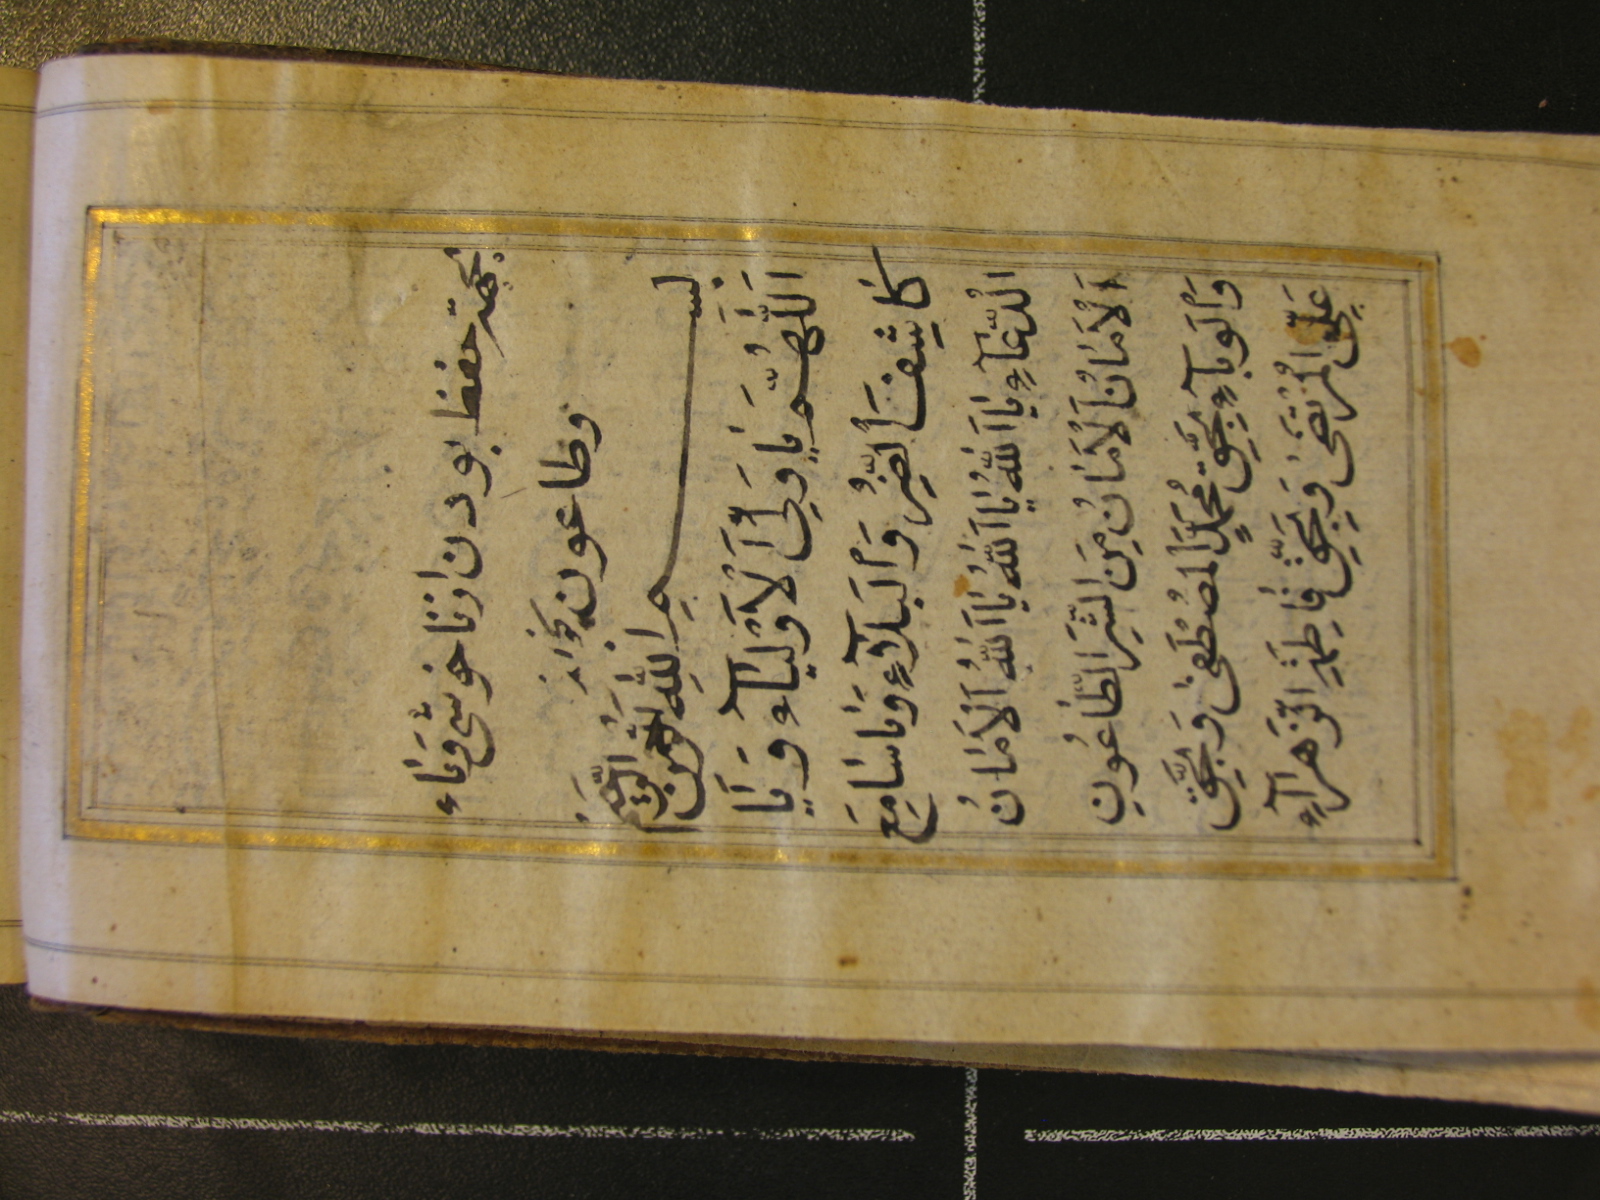 بجهة حفظ بودن از ناخوشی وباء
وطاعون بخواند
بسم الله الرحمن الرحيم
اَللّٰهُمَّ يَا وَلِيَّ الْاَوْلِيَآءِ وَيَا
كَاشِفَ الضُّرِّ وَالْبَلَآءِ وَيَا سَامِعَ
الدُّعَآءِ يَا اَللّٰهُ يَا اَللّٰهُ يَا اَللّٰهُ اَلْاَمَانُ
اَلْاَمَانُ اَلْاَمَانُ مِنَ الشَّرِّ الطَّاعُونِ
وَالْوَبَآءِ بِحَقِّ مُحَمَّدٍ الْمُصْطَفٰى وَبِحَقِّ
عَلِيٍّ الْمُرْتَضٰى وَبِحَقِّ فَاطِمَةَ الزَّهْرَآءِ